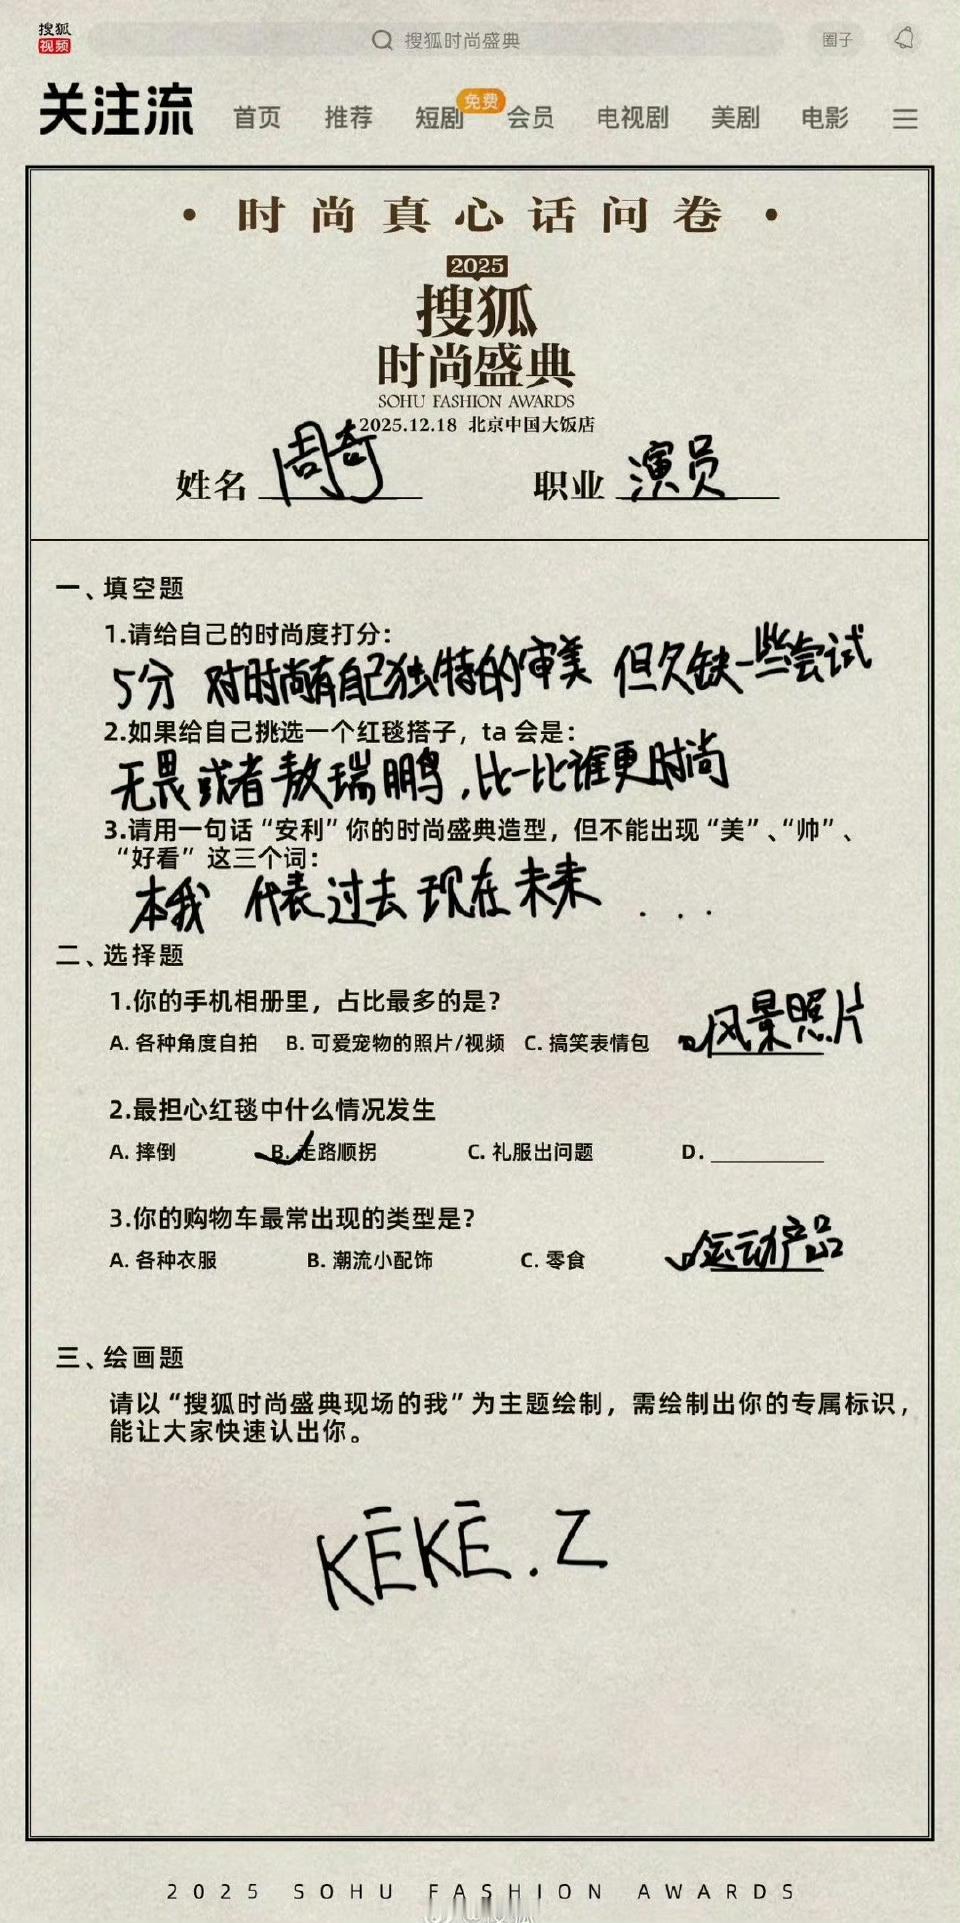 搜狐
视频
搜狐时尚盛典
圈子
关注流
首页 推荐 短剧 免费 会员 电视剧 美剧 电影
·时尚真心话问卷·
2025
搜狐
时尚盛典
SOHU FASHION AWARDS
2025.12.18 北京中国大饭店
姓名 周奇 职业 演员
一、填空题
1.请给自己的时尚度打分：
5分 对时尚有自己独特的审美 但欠缺一些尝试
2.如果给自己挑选一个红毯搭子，ta 会是：
无畏或者敖瑞鹏，比一比谁更时尚
3.请用一句话“安利”你的时尚盛典造型，但不能出现“美”、“帅”、
“好看”这三个词：
本我 代表过去 现在 未来 ...
二、选择题
1.你的手机相册里，占比最多的是？
A. 各种角度自拍 B. 可爱宠物的照片/视频 C. 搞笑表情包 风景照片
2.最担心红毯中什么情况发生
A. 摔倒 B. 走路顺拐 C. 礼服出问题 D.
3.你的购物车最常出现的类型是？
A. 各种衣服 B. 潮流小配饰 C. 零食 运动产品
三、绘画题
请以“搜狐时尚盛典现场的我”为主题绘制，需绘制出你的专属标识，
能让大家快速认出你。
KĒKĒ.Z
2025 SOHU FASHION AWARDS